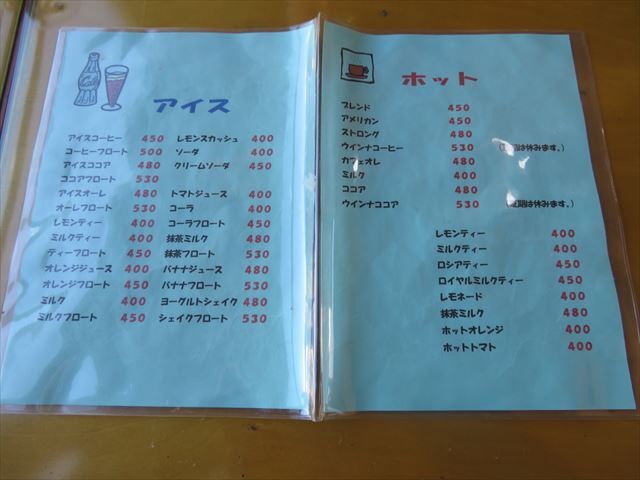 アイス
アイスコーヒー 450 レモンスカッシュ 400
コーヒーフロート 500 ソーダ 400
アイスココア 480 クリームソーダ 450
ココアフロート 530
アイスオーレ 480 トマトジュース 400
オーレフロート 530 コーラ 400
レモンティー 400 コーラフロート 450
ミルクティー 400 抹茶ミルク 480
ティーフロート 450 抹茶フロート 530
オレンジジュース 400 バナナジュース 480
オレンジフロート 450 バナナフロート 530
ミルク 400 ヨーグルトシェイク 480
ミルクフロート 450 シェイクフロート 530
ホット
ブレンド 450
アメリカン 450
ストロング 480
ウインナコーヒー 530 は休みます。)
カフェオレ 480
ミルク 400
ココア 480
ウインナココア 530 は休みます。)
レモンティー 400
ミルクティー 400
ロシアティー 450
ロイヤルミルクティー 450
レモネード 400
抹茶ミルク 480
ホットオレンジ 400
ホットトマト 400